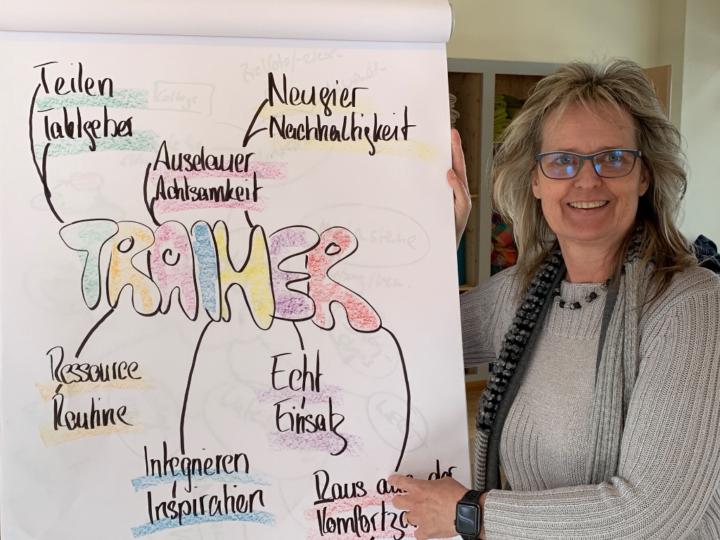 Teilen
Taktgeber
Neugier
Nachhaltigkeit
Ausdauer
Achtsamkeit
TRAINER
Ressource
Routine
Echt
Einsatz
Integrieren
Inspiration
Raus aus der